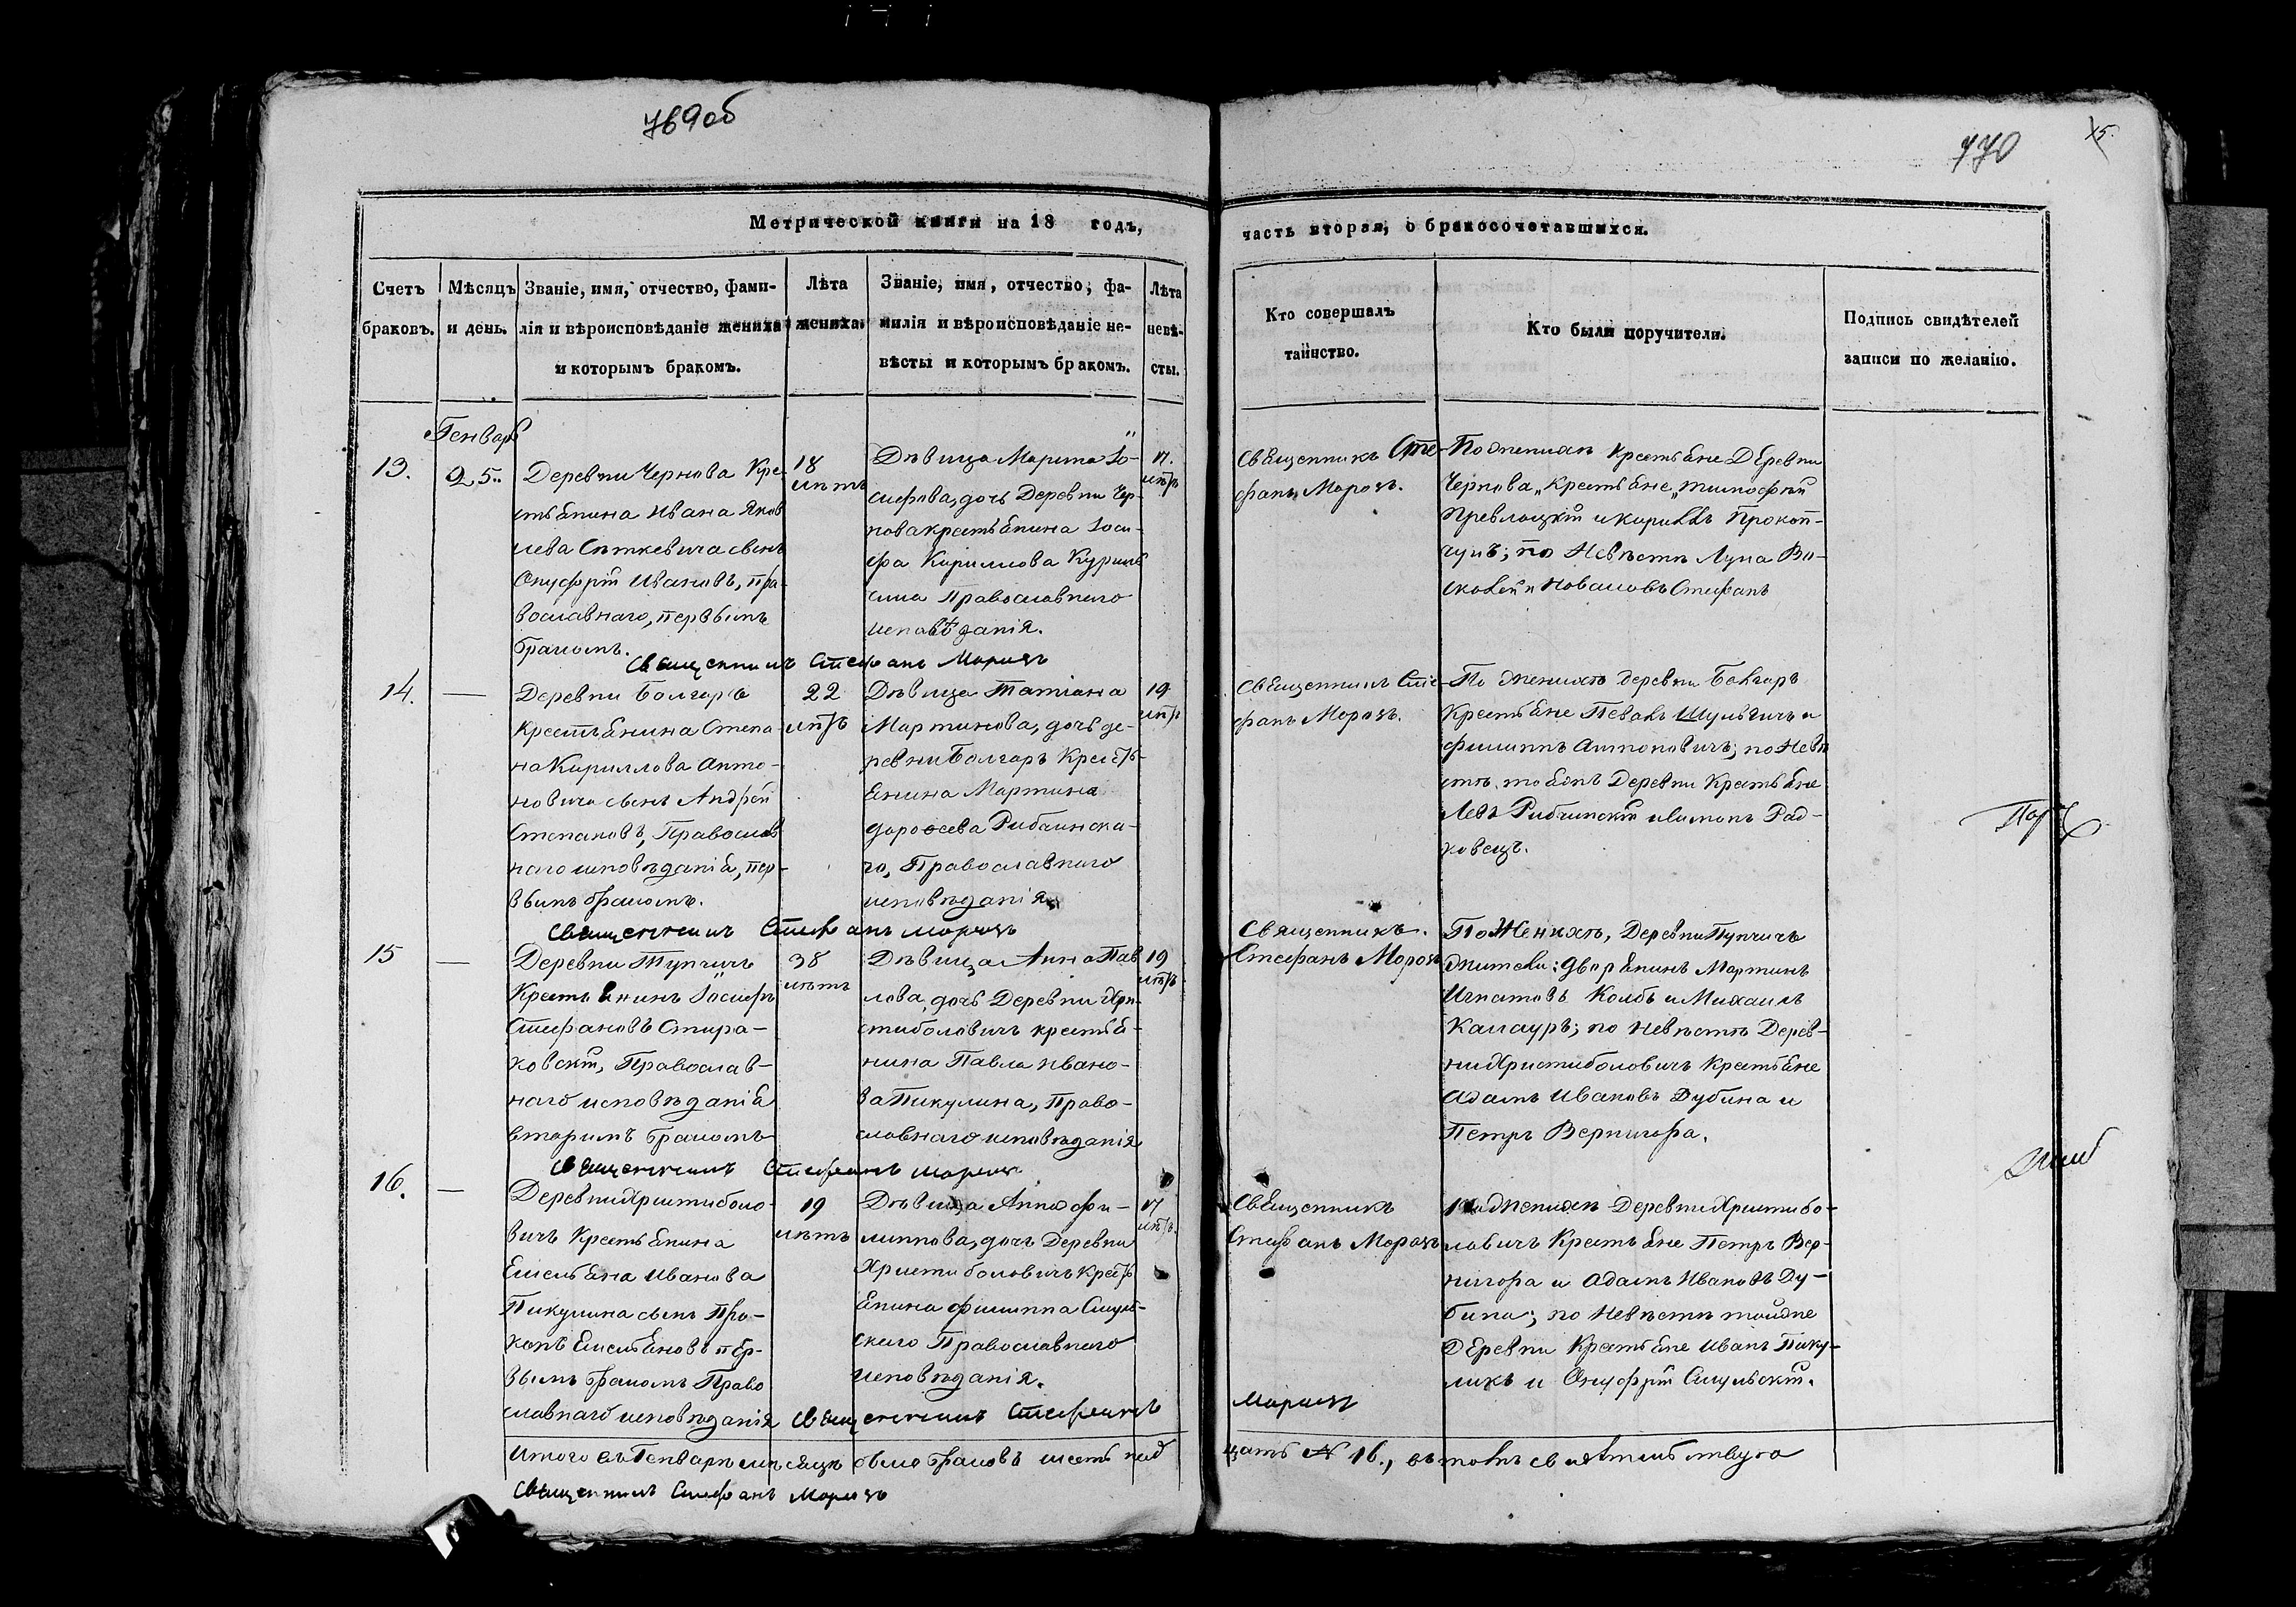 769об
770
15.
Метрической книги на 18 годъ,
часть вторая, о бракосочетавшихся.
Счетъ браковъ.
Мѣсяцъ и день.
Званіе, имя, отчество, фами-
лія и вѣроисповѣданіе жениха
и которымъ бракомъ.
Лѣта
жениха.
Званіе, имя, отчество, фа-
милія и вѣроисповѣданіе не-
вѣсты и которымъ бракомъ.
Лѣта
невѣ-
сты.
Кто совершалъ
таинство.
Кто были поручители.
Подпись свидѣтелей
записи по желанію.
Генварь
13.
25.
Деревни Чернова Кре-
стьянина Ивана Яков
лева Сѣткевича сынъ
Онуфрій Ивановъ, пра-
вославнаго, первымъ
бракомъ.
18
лѣтъ
Дѣвица Марина Іо-
сифова, дочь Деревни Чер-
нова крестьянина Іоси-
фа Кириллова
Православнаго
исповѣданія.
17.
лѣтъ
Священникъ Сте-
фанъ Морозъ.
По женихѣ Крестьяне Деревни
Чернова, Крестьяне, Тимофей
и Кириллъ Прокоп-
чукъ; по Невѣстѣ Лука
и Стефанъ
Священникъ Стефанъ Морозъ
14.
—
Деревни Болгаръ
Крестьянина Степа-
на Кириллова Анто-
новича сынъ Андрей
Степановъ, Православ
наго исповѣданія, пер-
вымъ бракомъ.
22
лѣтъ
Дѣвица Татіана
Мартинова, дочь де-
ревни Болгаръ Кресть-
янина Мартина
Дорофеева Рибчинска-
го, Православнаго
исповѣданія
19
лѣтъ
Священникъ Сте-
фанъ Морозъ.
По женихѣ деревни Болгаръ
Крестьяне Шульгичъ и
Филиппъ Антоновичъ; по Невѣ
стѣ тояжъ Деревни Крестьяне
Левъ Рибчинскій и Рад-
ковецъ.
Священникъ Стефанъ Морозъ
15
—
Деревни Тупчичъ
Крестьянинъ Іосифъ
Стефановъ Стира-
ховскій, Православ-
наго исповѣданія
вторимъ бракомъ
38
лѣтъ
Дѣвица Анна Пав
лова, дочь Деревни Хри-
стиболовичъ крестья-
нина Павла Ивано-
ва Пикулина, Право-
славнаго исповѣданія
19
лѣтъ
Священникъ.
Стефанъ Морозъ
По Женихѣ, Деревни Тупчичъ
жители: дворянинъ Мартинъ
Игнатовъ Колбъ и Михаилъ
Калауръ; по Невѣстѣ Дерев-
ни Христиболовичъ Крестьяне
Адамъ Ивановъ Дубина и
Петръ Вернигора.
Священникъ Стефанъ Морозъ
16.
—
Деревни Христиболо-
вичъ Крестьянина
Емельяна Иванова
Пикулина сынъ Про-
копъ Емельяновъ пер-
вымъ бракомъ Право
славнаго исповѣданія
19
лѣтъ
Дѣвица Анна Фи-
липпова, дочь Деревни
Христиболовичъ Кресть
янина Филиппа Смуль-
скаго Православнаго
исповѣданія.
17
лѣтъ.
Священникъ
Стефанъ Морозъ
По женихѣ Деревни Христибо-
ловичъ Крестьяне Петръ Вер-
нигора и Адамъ Ивановъ Ду-
бина; по Невѣстѣ тойже
Деревни Крестьяне Иванъ Пику-
ликъ и Онуфрій Смульскій.
Священникъ Стефанъ Морозъ
Итого въ Генварѣ мѣсяцѣ было браковъ шестнадцать № 16.,
Священникъ Стефанъ Морозъ